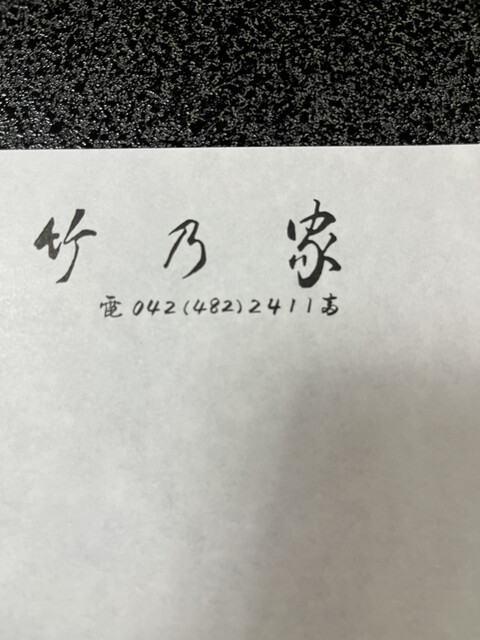 竹乃家
電 042(482)2411